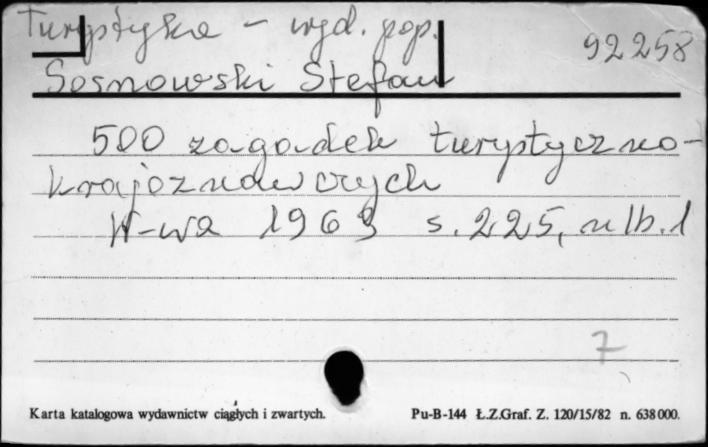 Turystyka - wyd. pop.
92258
Sosnowski Stefan
500 zagadek turystyczno-
krajoznawczych
W-wa 1963 s. 225, nlb. 1
7
Karta katalogowa wydawnictw ciągłych i zwartych.
Pu-B-144 Ł.Z.Graf. Z. 120/15/82 n. 638000.